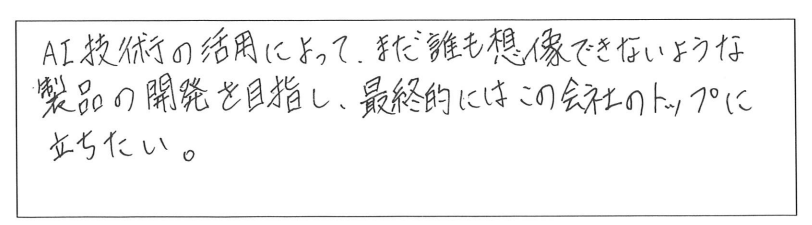 AI技術の活用によって、まだ誰も想像できないような
製品の開発を目指し、最終的にはこの会社のトップに
立ちたい。